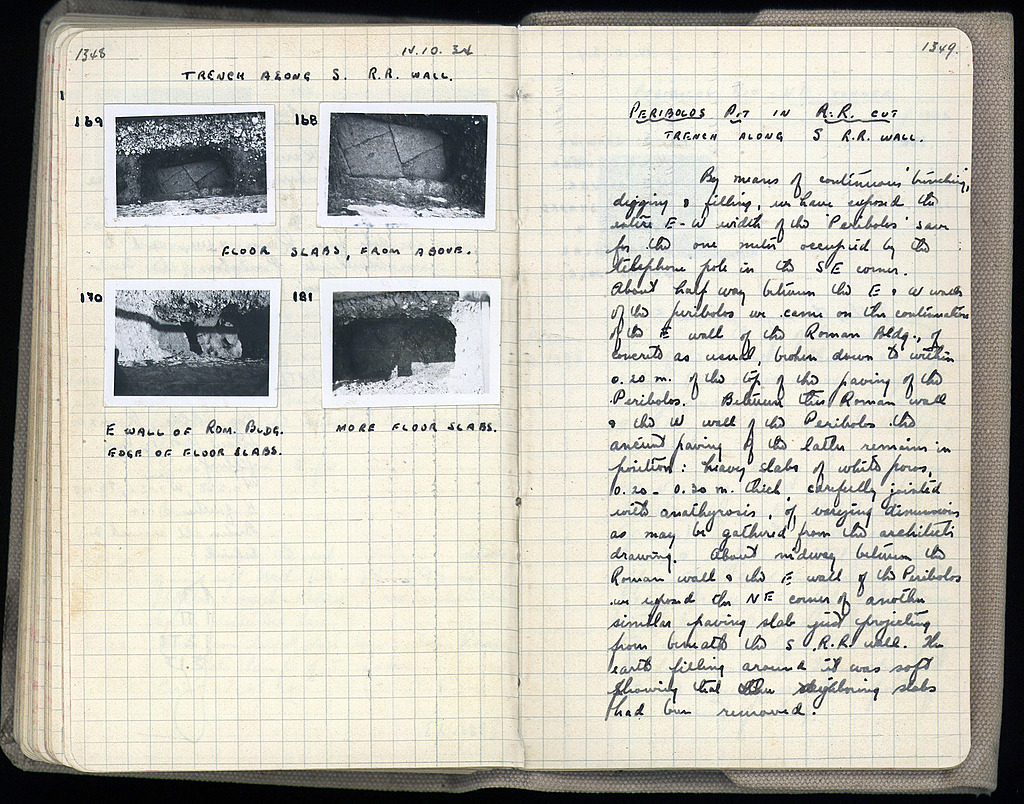 1348
TRENCH ALONG S. R.R. WALL.
169
168
FLOOR SLABS, FROM ABOVE.
170
181
E WALL OF ROM. BLDG.
EDGE OF FLOOR SLABS.
MORE FLOOR SLABS.
1349.
PERIBOLOS PIT IN R.R. CUT
TRENCH ALONG S R.R. WALL.
By means of continuous trenching,
digging & filling, we have exposed the
entire E-W width of the 'Peribolos' save
for the one meter occupied by the
telephone pole in the SE corner.
About half way between the E & W walls
of the peribolos we came on the continuation
of the E wall of the Roman Bldg., of
concrete as usual, broken down to within
0.20 m. of the top of the paving of the
Peribolos. Between this Roman wall
& the W wall of the Peribolos the
ancient paving of the latter remains in
position: heavy slabs of white poros,
0.20 - 0.30 m. thick, carefully jointed
with anathyrosis, of varying dimensions
as may be gathered from the architect's
drawing. About midway between the
Roman wall & the E wall of the Peribolos
we exposed the NE corner of another
similar paving slab just projecting
from beneath the S R.R. wall. The
earth filling around it was soft
showing that the neighboring slabs
had been removed.